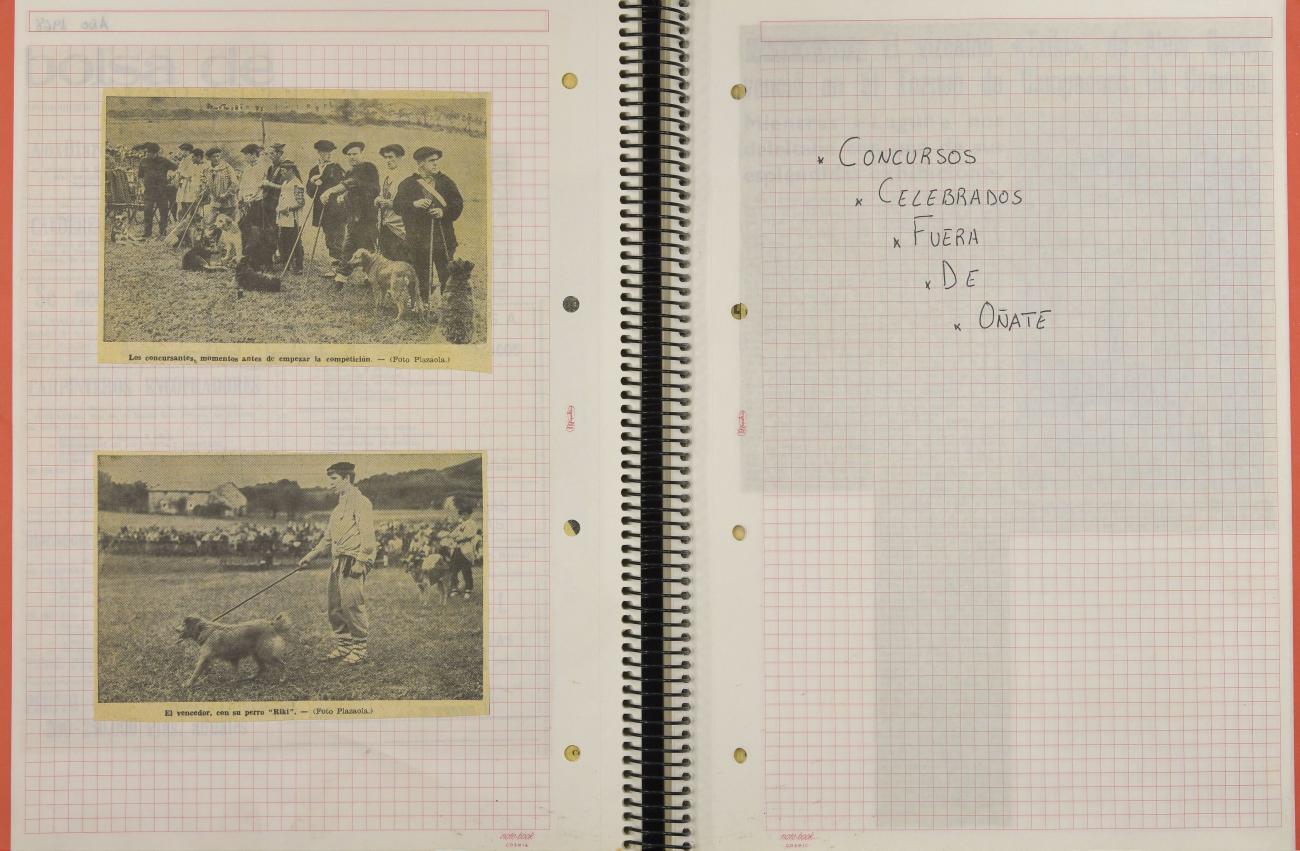 Los concursantes, momentos antes de empezar la competición. — (Foto Plazaola.)
El vencedor, con su perro "Riki". — (Foto Plazaola.)
* CONCURSOS
* CELEBRADOS
* FUERA
* DE
* OÑATE
note-book
note-book